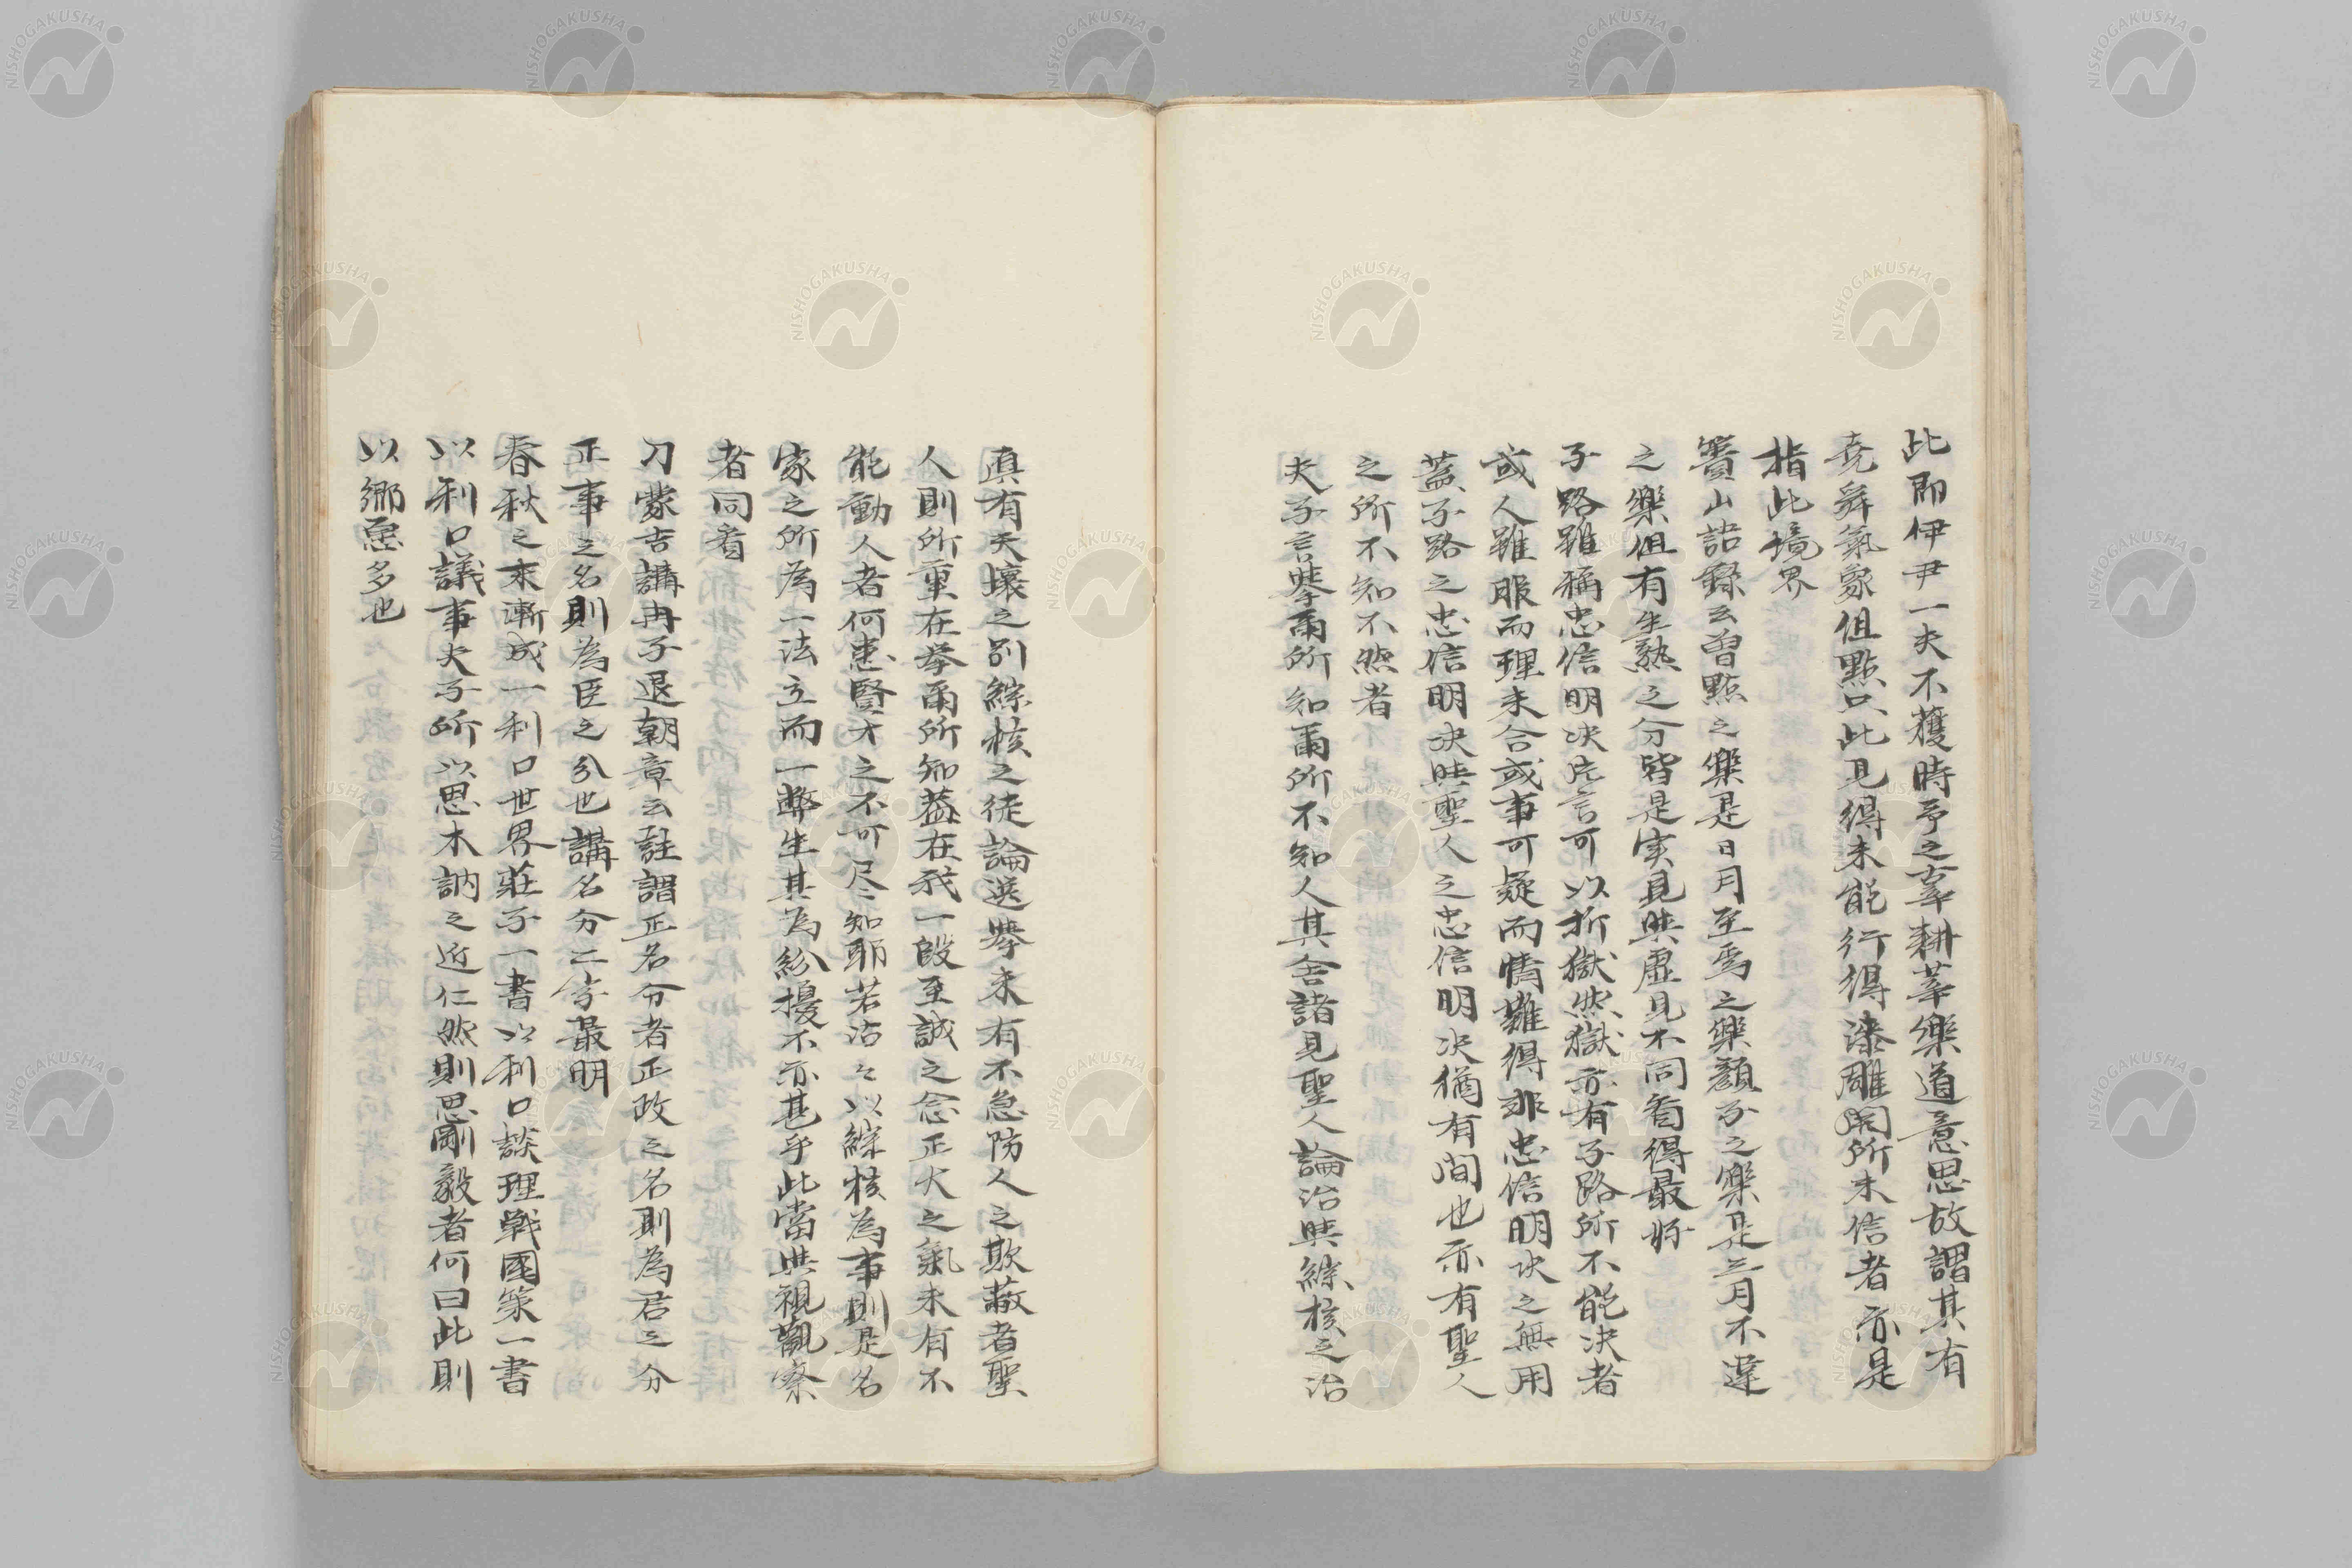 此即伊尹一夫不獲時予之辜耕莘樂道意思故謂其有
堯舜氣象但點只此見得未能行得漆雕開所未信者亦是
指此境界
簣山語録云曽點之樂是日月至焉之樂顏子之樂是三月不違
之樂但有生熟之分皆是実見與虛見不同看得最好
子路雖稱忠信明決片言可以折獄然獄亦有子路所不能決者
或人雖服而理未合或事可疑而情難得非忠信明決之無用
蓋子路之忠信明決與聖人之忠信明決猶有間也亦有聖人
之所不知不然者
夫子言舉爾所知爾所不知人其舍諸見聖人論治與綜核之治
真有天壤之別綜核之徒論選舉未有不急防人之欺蔽者聖
人則所重在挙爾所知蓋在我一段至誠之念正大之氣未有不
能動人者何患賢才之不可尽知耶若沾々以綜核為事則是名
家之所為一法立而一弊生其為紛擾不亦甚乎此當與視觀察
者同看
刁蒙吉講冉子退朝章云註謂正名分者正政之名則為君之分
正事之名則為臣之分也講名分二字最明
春秋之末漸成一利口世界莊子一書以利口談理戰國策一書
以利口議事夫子所以思木訥之近仁然則思剛毅者何曰此則
以鄉愿多也
NISHOGAKUSHA